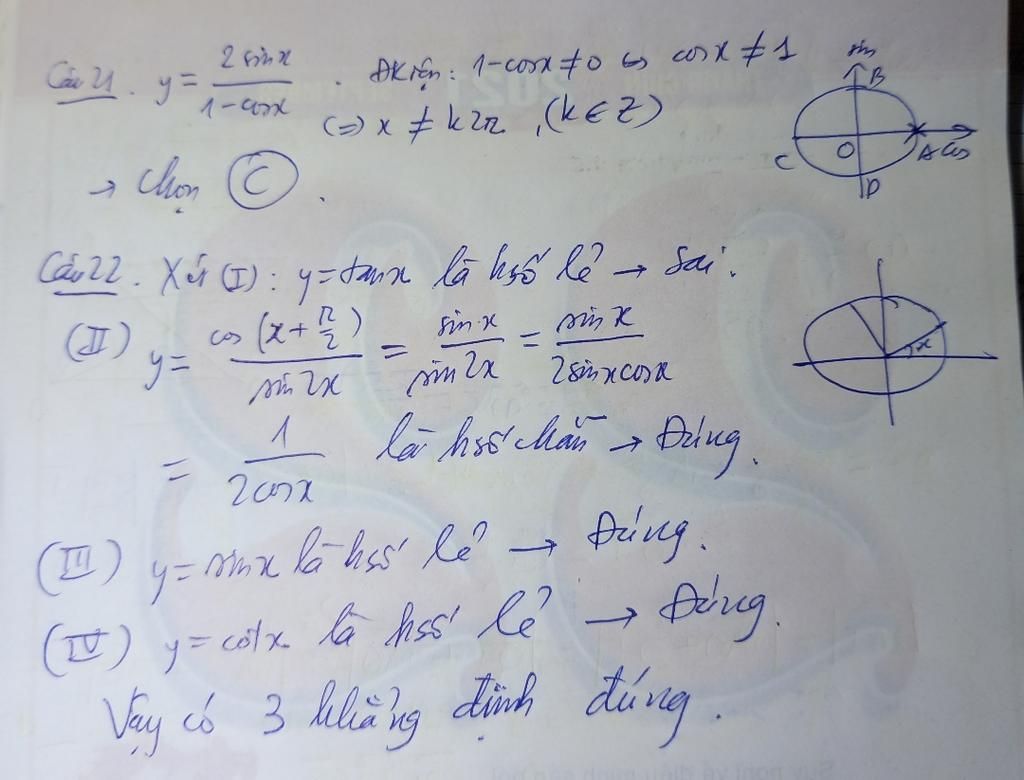 Câu 21. y = 2 sinx / 1 - cosx . ĐKiện: 1 - cosx ≠ 0 ⇔ cosx ≠ 1
⇔ x ≠ k2π, (k ∈ Z)
→ Chọn C .
sin
B
C O A cos
D
Câu 22. Xét (I): y = tanx là hsố lẻ → Sai.
(II) y = cos (x + π/2) / sin 2x = sin x / sin 2x = sin x / 2sinxcosx
x
= 1 / 2cosx là hsố chẵn → Đúng.
(III) y = sinx là hsố lẻ → Đúng.
(IV) y = cotx là hsố lẻ → Đúng.
Vậy có 3 khẳng định đúng.